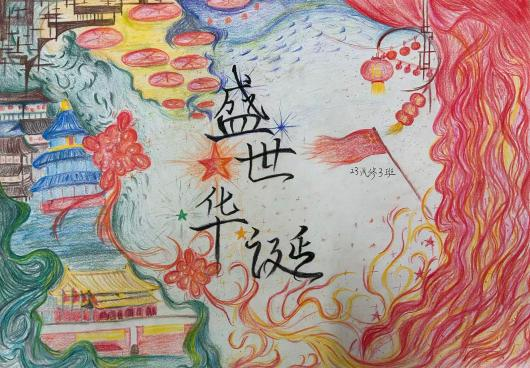 盛世
华诞
23汽修3班